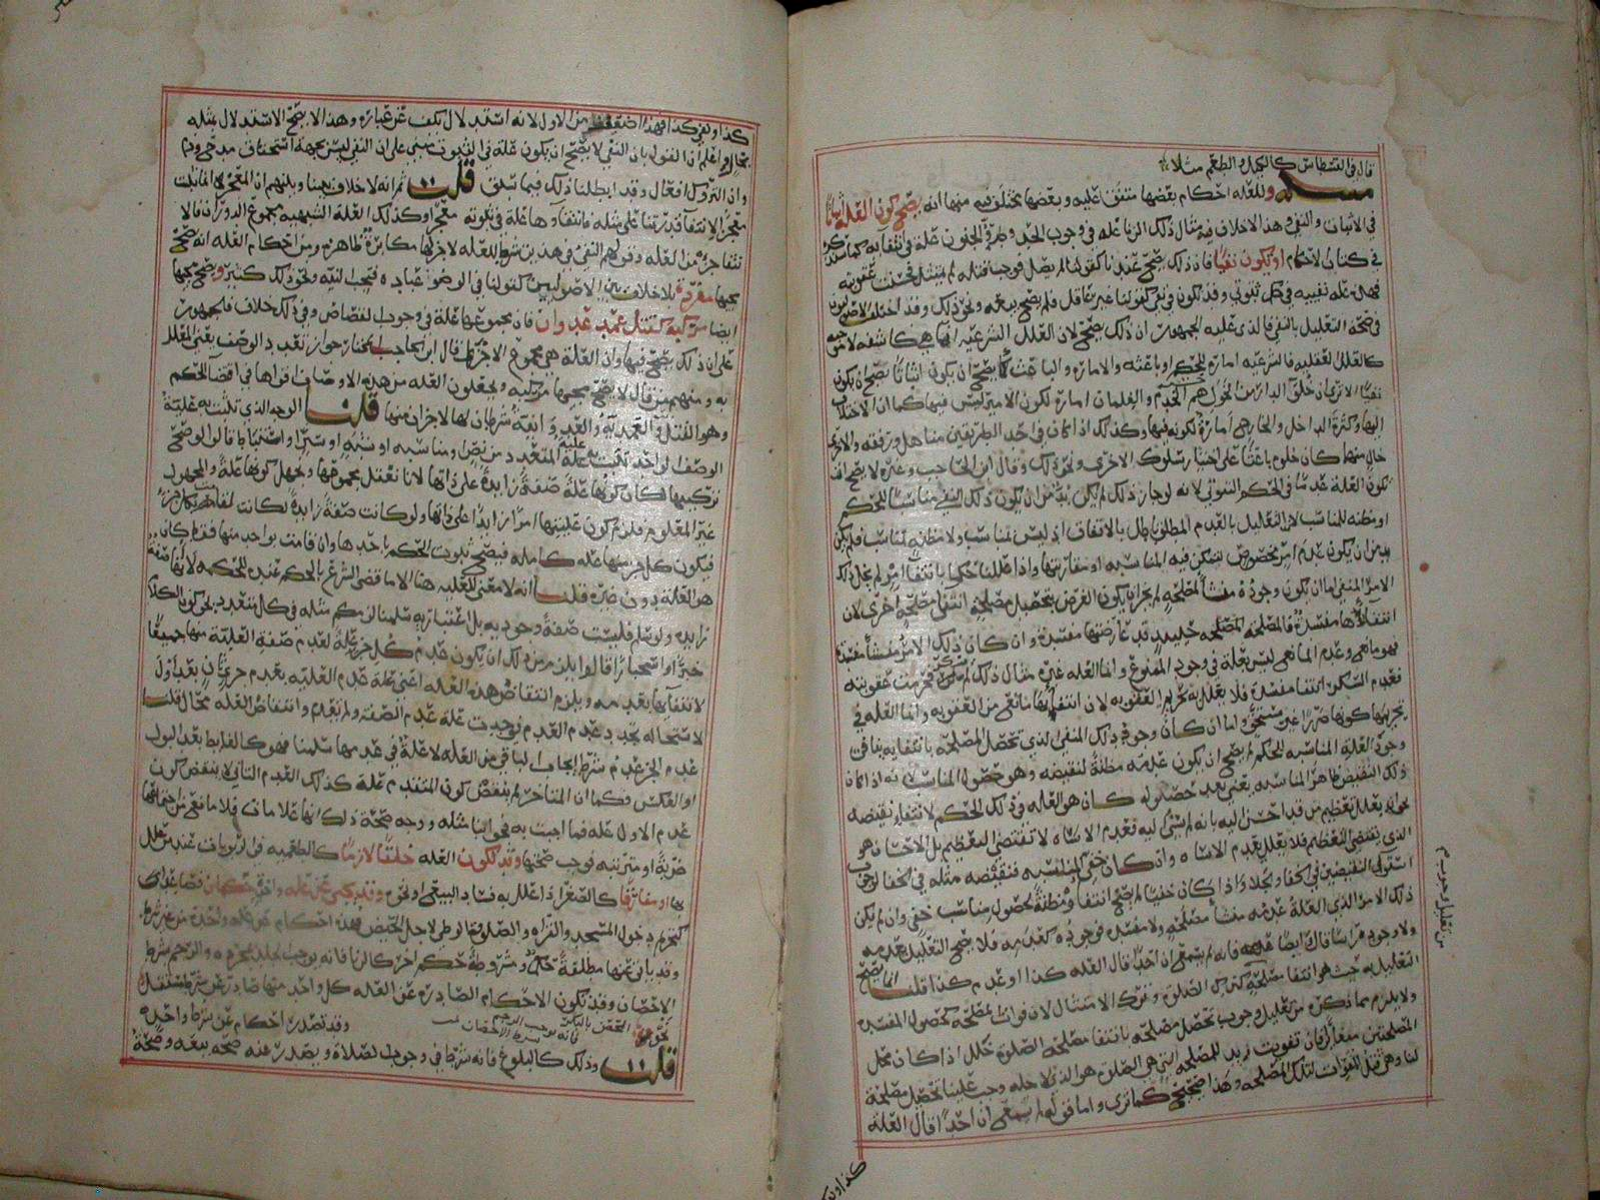 قال في القسطاس كالكيل والطعم مثلا
مسئلة وللعله احكام بعضها متفق عليه وبعضها مختلف فيه منها انه يصح كون العله اثباتا
في الاثبات والنفي هذا الاخلاف فيه مثال ذلك الزنا عله في وجوب الحد وطروّ الجنون علة في انتفائه كما سنذكره
في كتاب الاحكام او يكون نفيًا فان ذلك يصح عندنا كقولنا لم يصل فوجب قتله لم يمتثل فحسنت عقوبته
فهي عله نفييه في حكم ثبوتي وقد تكون في نفي كقولنا غير عاقل فلم يصح بيعه ونحو ذلك وقد اختلف الاصوليون
في صحة التعليل بالنفي فالذي عليه الجمهور ان ذلك يصح لان العلل الشرعيه انما هي كاشفه لا موجبه
كالعلل العقليه فالشرعيه اماره للحكم او باعثه والاماره والباعث كما يصح ان يكون اثباتا يصح ان يكون
نفيًا الا ترى ان خلو الدار من الخيل هم الخدم والغلمان امارة لكون الامير ليس فيها كما ان الاختلاف
اليها وكثرة الداخل والخارج امارة لكونه فيها وكذلك اذا كان في احد الطريقين مناهل ومرفقه والاخرى
خال منها كان خلوها باعثا على اختيار سلوك الاخرى ونحو ذلك وقال ابن الحاجب وغيره لا يصح ان
تكون العلة عدمًا في الحكم الثبوتي لانه لو جاز ذلك لم يكن بد من ان يكون ذلك النفي مناسبًا للحكم
او مظنه للمناسب لان التعليل بالعدم المطلق باطل بالاتفاق اذ ليس بمناسب ولا مظنة لمناسب فلم يكن
بد من ان يكون عدم امر مخصوص تتمكن فيه المناسبه او مقارنتها واذا عللنا حكمًا بانتفاء امر لم يخل ذلك
الامر المنفي اما ان يكون وجوده منشأ لمصلحه لم يجز ان يكون الغرض تحصيل مصلحة انتفاء مصلحه اخرى لان
انتفاءها مفسدة فالمصلحه المصلحه حينئذ قد عارضتها مفسدة وان كان ذلك الامر منشأ مفسدة
فهو مانع وعدم المانع ليس بعلة في وجود الممنوع وانما العله غيره مثال ذلك لم يسكر فحرمت عقوبته
فعدم السكر انتفاء مفسدة فلا يعلل به تحريم العقوبه لان انتفاءها مانع من العقوبه وانما العله في
تحريمها كونها ضررًا غير مستحق واما ان كان وجود ذلك المنفي الذي تحصل المصلحه بانتفايه ينافي
وجود العلة المناسبه للحكم لم يصح ان يكون عدمه مظنة لنقيضه وهو حصول المناسب لانه اذا كان
ذلك النقيض ظاهر المناسبه يعني بعد حصوله كان هو العله في ذلك الحكم لا انتفاء نقيضه
نحو انه يعلل تعظيم من قد احسن اليه بانه لم يسئ اليه فعدم الاساه لا تقتضي التعظيم بل الاحسان هو
الذي يقتضي التعظيم فلا يعلل بعدم الاساه وان كان خفي المناسبه فنقيضه مثله في الخفا لوجوب
استوى النقيضين في الخفا والجلا واذا كان خفيًا لم يصح انتفاوه مظنة لحصول مناسب خفي وان لم يكن
ذلك الامر الذي العلة عدمه منشأ مصلحة ولا مفسده فوجوده كعدمه فلا يصح التعليل بعدمه
ولا وجوده قال ايضا فانه لم يسمع ان احدا قال العله كذا او عدم كذا قلت انما يصح
التعليل به حيث هو انتفا مصلحة كترك الصلوة وترك الامتثال لان فوات المصلحة كحصول المفسده
ولا يلزم مما ذكره من تعليل وجوب تحصل مصلحه بانتفا مصلحه الصلوة خلل اذا كان محل
المصلحتين متغايرا فان تفويت زيد للمصلحه التي هي الصلوه هو الذي لاجله وجب علينا تحصيل مصلحة
لنا وهي قتل المفوت لتلك المصلحه وهذا صحيح كما ترى واما قوله لم يسمع ان احدًا قال العلة
من تعليل وجوب م
كذا او نفي
كذا او نفي كذا فهذا اضعف من الاول لانه استدلال بكف عن عباره وهذا لا يصح الاستدلال بمثله
بحال واعلم ان القول بان النفي لا يصح ان يكون علة في الثبوت مبني على ان النفي ليس بجهة استحقاق مدح وذم
وان التروك افعال وقد ابطلنا ذلك فيما سلف قلت ثم انه لا خلاف بيننا وبينهم ان المعجز انما يثبت
معجزا لانتفا قدرتنا على مثله فانتفاوها علة في كونه معجزا وكذلك العلة الشبهيه مجموع الدوران فالا
نتفا جزء من العله وقولهم النفي في هذين شرط للعله لا جزء لها مكابرة ظاهرة ومن احكام العله انه يصح
مجيها مفردة بلا خلاف بين الاصوليين كقولنا في الوضوء عباده فتجب النيه ونحو ذلك كثير ويصح مجيها
ايضا مركبه كقتل عمد عدوان فان مجموعها علة في وجوب القصاص وفي ذلك خلاف فالجمهور
على ان ذلك يصح فيها وان العلة هي مجموع الاجزاء قال ابن الحاجب المختار جواز تعدد الوصف يعني المعلل
به ومنهم من قال لا يصح مجيها مركبه ويجعلون العله من هذه الاوصاف اقواها في اقتضا الحكم
وهو القتل والعمديه والعدوانية شرطان لها لا جزان منها قلت الوجه الذي تثبت به علية
الوصف الواحد تثبت به علية المتعدد من نص او مناسبه او شبه او سبر او استنباط قالوا لو صح
تركيبها لكان كونها علة صفة زايدة على ذاتها لانا نعقل مجموعها ونجهل كونها علة والمجهول
غير المعلوم فلزم كون عليتها امرا زايدا على ذاتها ولو كانت صفة زايدة لكانت لقامت بكل جزء
فيكون كل جزء منها علة كامله فيصح ثبوت الحكم باحدها وان قامت بواحد منها فقط كان
هو العلة دون غيره قلنا انه لا معنى للعليه هنا الا ما قضى الشرع بالحكم عنده للحكمه لا انها صفة
زايده ولو سلم فليست صفة وجوديه بل اعتباريه سلمنا لزمكم مثله في كل متعدد نحو كون الكلام
خبرًا او استخبارًا قالوا يلزم من ذلك ان يكون عدم كل جزء علة لعدم صفة العلية منها جميعًا
لانتفايها بعدمه ويلزم انتقاض هذه العله اعني علة عدم العليه بعدم جزء ثان بعد اول
لاستحاله تجدد عدم العدم فوجدت علة عدم الصفة ولم تعدم وانتقاض العله محال قلت
عدم الجزء عدم شرط ايجاب الباقي من العله لا علة في عدمها سلمنا فهو كالغايط بعد البول
او العكس وكما ان المتاخر لم ينقض كون المتقدم علة كذلك العدم الثاني لا ينقض كون
عدم الاول علة فما اجبت به فجوابنا مثله ووجه صحة ذلك انها علامات فلا مانع من اجتماعها
ضربة او مترتبه فوجب صحتها وقد تكون العله خلقا لازما كالطعميه في الربويات عند من علل
بها او مفارقا كالصغر اذا علل به فساد البيع او نحوه وقد يجي عن عله واحدة حكمان فصاعدا
كتحريم دخول المسجد والقراه والصلوة والوطي لاجل الحيض فهذه احكام عن علة واحدة من غير شرط
وقد ياتي عنها مطلقة حكم ومشروطة حكم اخر كالزنا فانه يوجب الجلد بمجرده والرجم بشرط
الاحصان وقد تكون الاحكام الصادره عن العله كل واحد منها صادر عن شرط مستقل
نحو وقد تصدر احكام عن شرط واحد
قلت وذلك كالبلوغ فانه شرط في وجوب الصلاة ويصدر عنه صحه بيعه وصحة